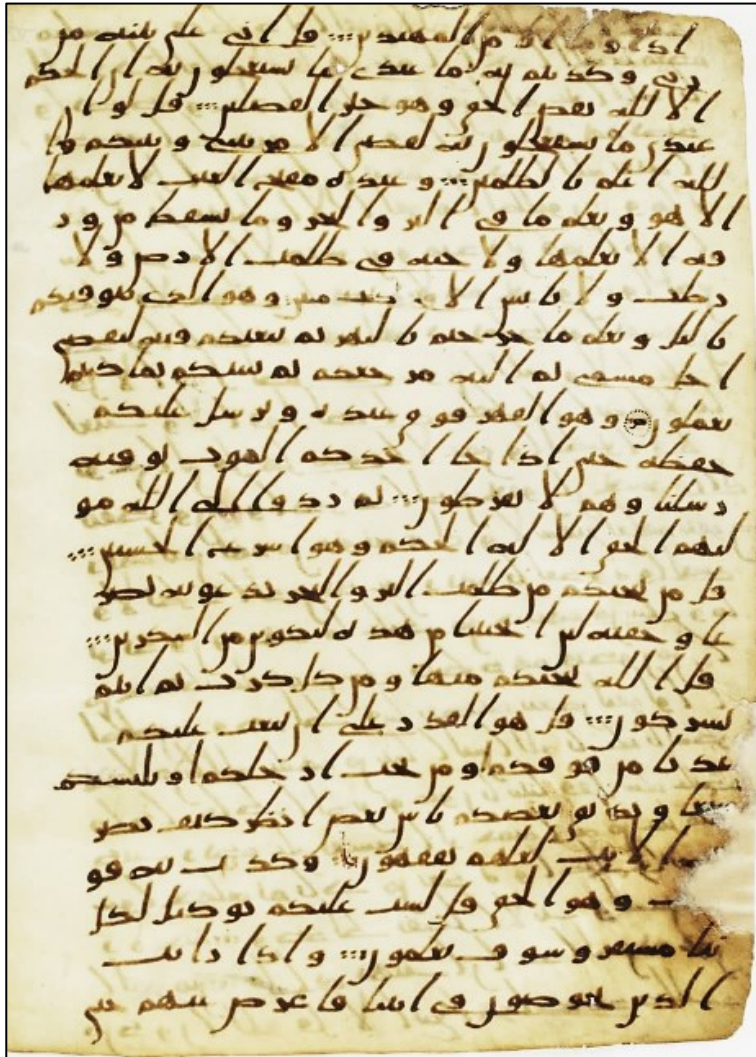 اذا وما انا من المهتدين قل اني على بينه من
ربي وكذبتم به ما عندي ما تستعجلون به ان الحكم
الا لله يقص الحق وهو خير الفصلين قل لو ان
عندي ما تستعجلون به لقضي الامر بيني وبينكم وا
لله اعلم بالظلمين وعنده مفتح الغيب لا يعلمها
الا هو ويعلم ما في البر والبحر وما تسقط من ور
قه الا يعلمها ولا حبه في ظلمت الارض ولا
رطب ولا يابس الا في كتب مبين وهو الذي يتوفيكم
باليل ويعلم ما جرحتم بالنهر ثم يبعثكم فيه ليقضى
اجل مسمى ثم اليه مرجعكم ثم ينبيكم بما كنتم
تعملون وهو القهر فوق عبده ويرسل عليكم
حفظه حتى اذا جا احدكم الموت توفته
رسلنا وهم لا يفرطون ثم ردوا الى الله مو
ليهم الحق الا له الحكم وهو اسرع الحسبين
قل من ينجيكم من ظلمت البر والبحر تدعونه تضر
عا وخفيه لين انجيتنا من هذه لنكونن من الشكرين
قل الله ينجيكم منها ومن كل كرب ثم انتم
تشركون قل هو القدر على ان يبعث عليكم
عذبا من فوقكم او من تحت ارجلكم او يلبسكم
شيعا ويذيق بعضكم باس بعض انظر كيف نصر
الايت لعلهم يفقهون وكذب به قو
وهو الحق قل لست عليكم بوكيل لكل
نبا مستقر وسوف تعلمون واذا رايت
الذين يخوضون في ايتنا فاعرض عنهم حتى